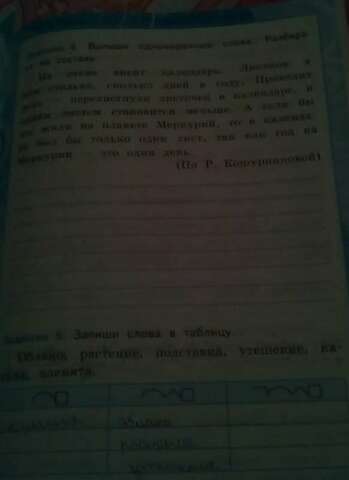 Задание 4. Выпиши однокоренные слова. Разбери
их по составу.
На стене висит календарь. Листков в
нём столько, сколько дней в году. Проходит
день — перелистнули листочек в календаре, и
листов становится меньше. А если бы
мы жили на планете Меркурий, то в календаре
был бы только один лист, так как год на
Меркурии — это один день.
(По Р. Кошурниковой)
Задание 5. Запиши слова в таблицу.
Облако, растение, подставка, утешение, ка-
планета.